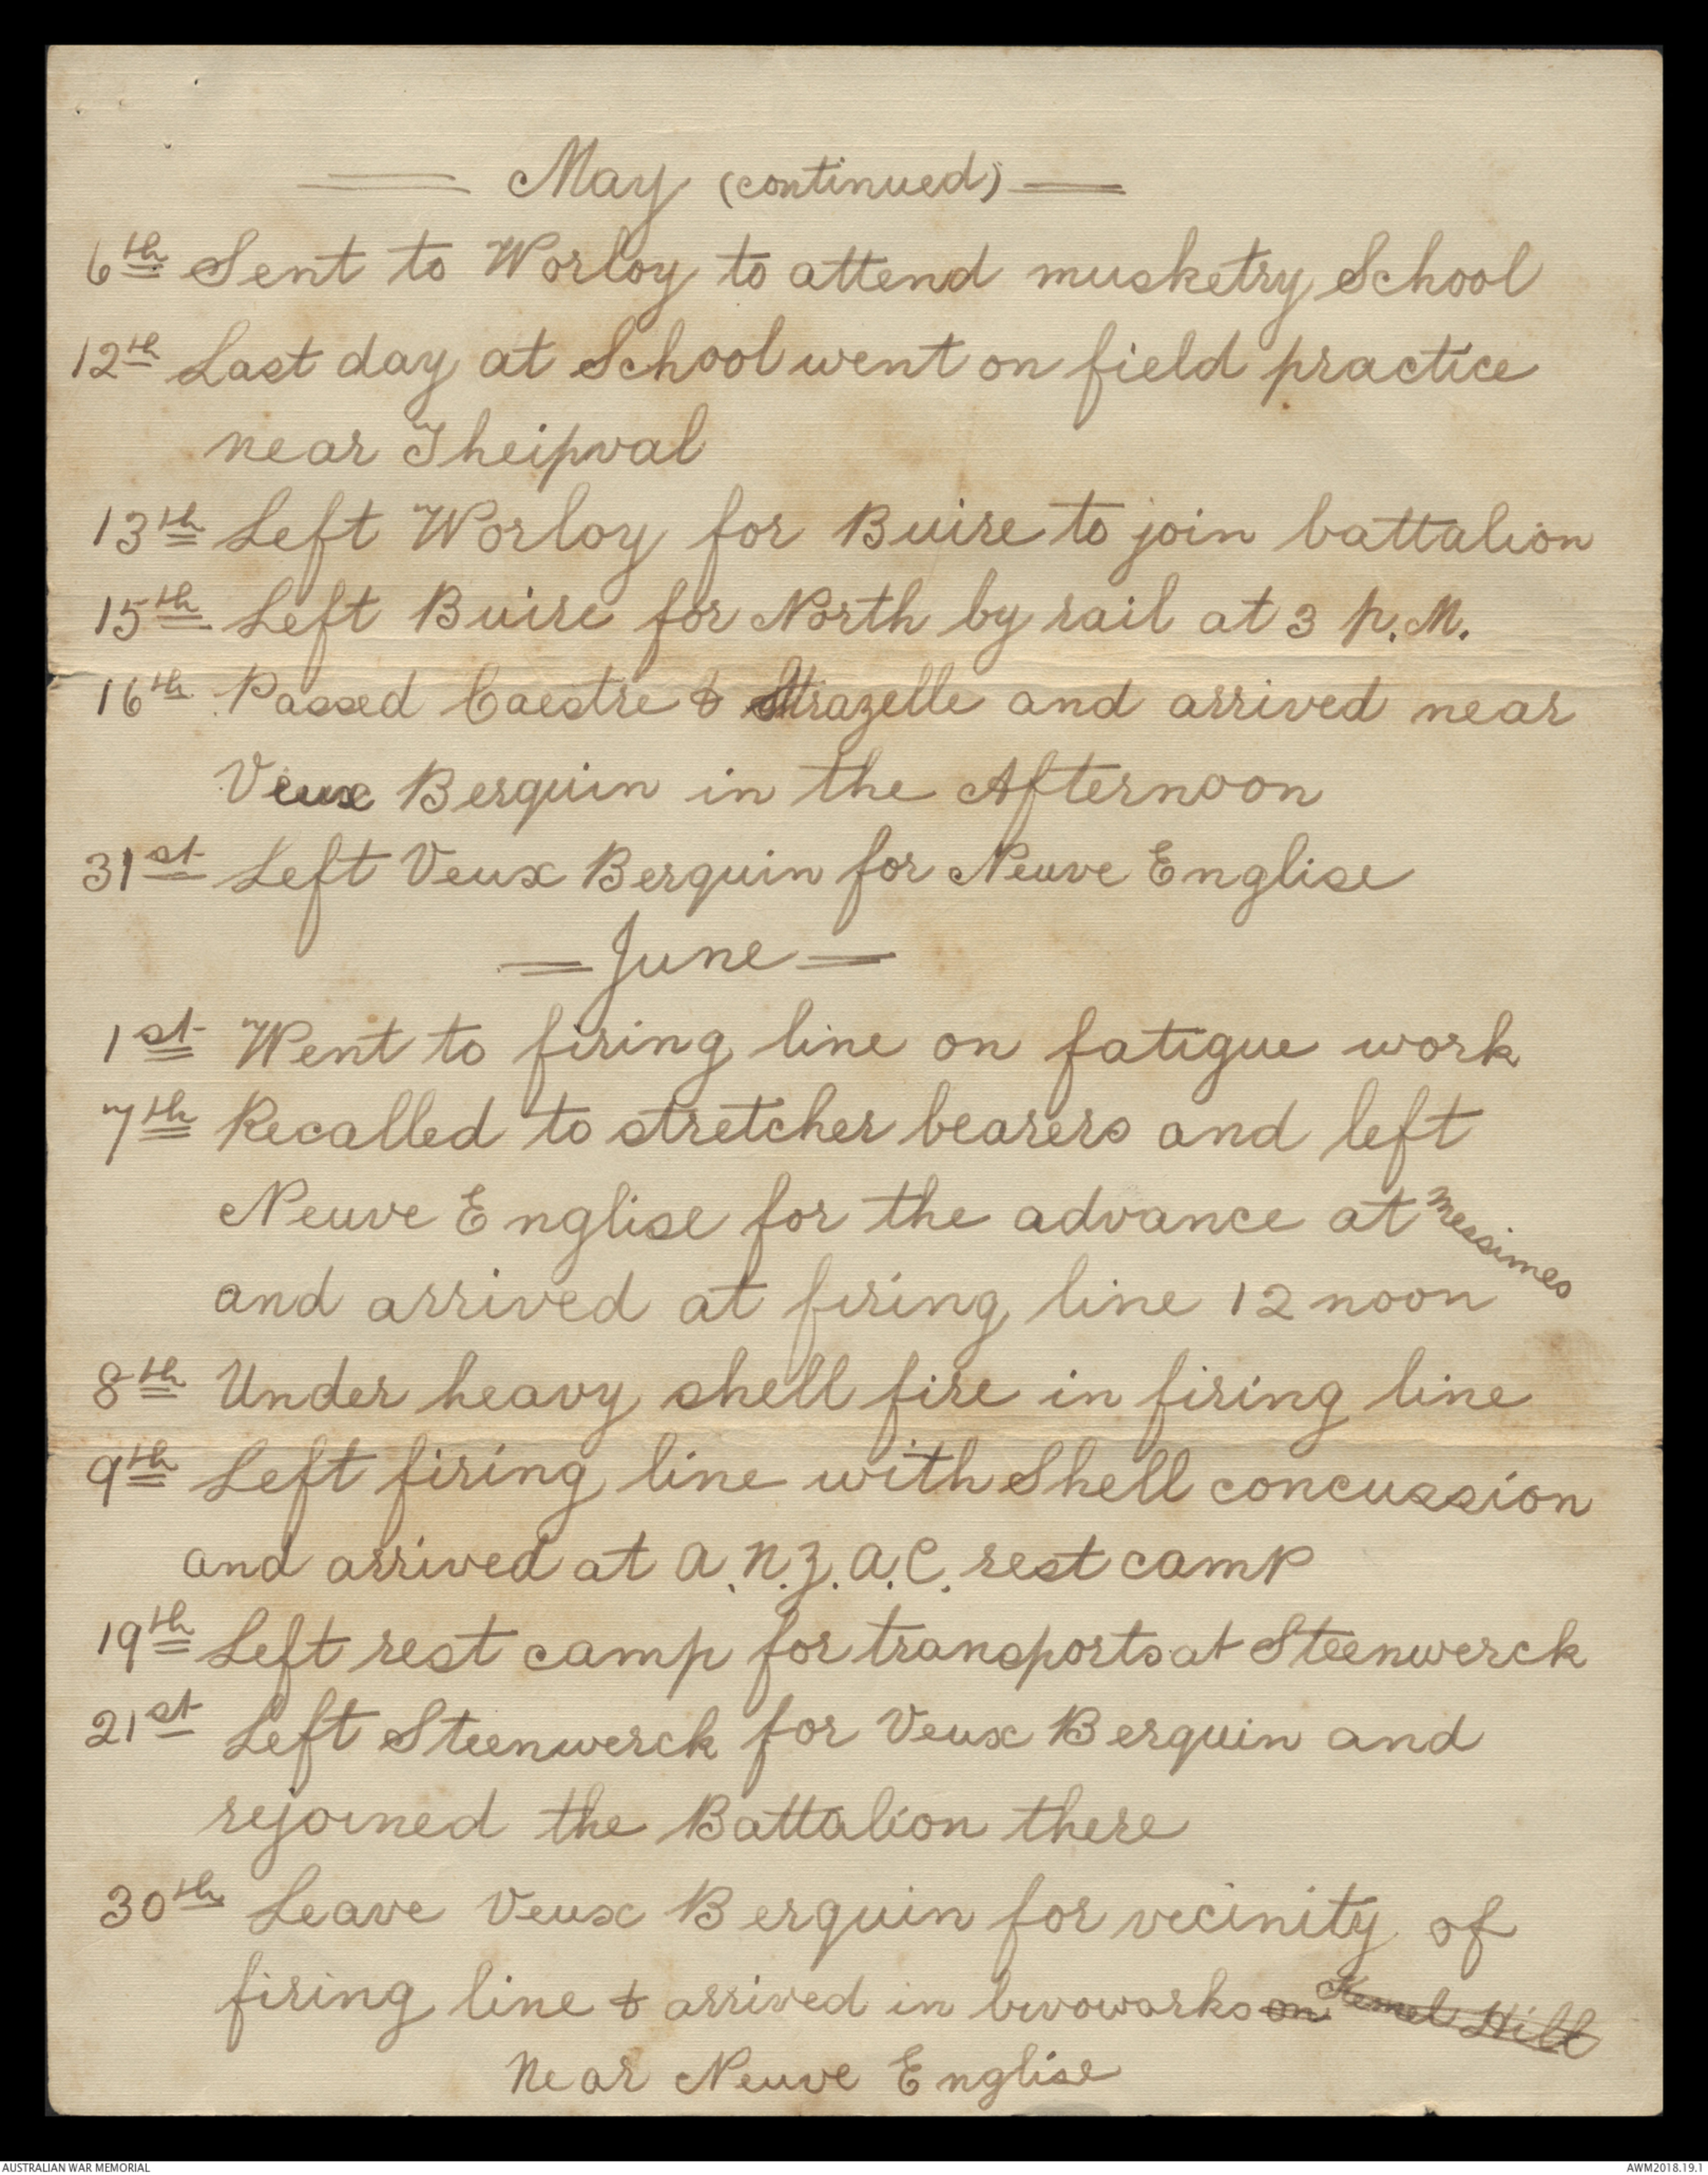 May (continued)
6th Sent to Worloy to attend musketry School
12th Last day at School went on field practice
near Theipval
13th Left Worloy for Buire to join battalion
15th Left Buire for North by rail at 3 p.M.
16th Passed Caestre & Strazelle and arrived near
Veux Berquin in the Afternoon
31st Left Veux Berquin for Neuve Englise
June
1st Went to firing line on fatigue work
7th Recalled to stretcher bearers and left
Neuve Englise for the advance at Messines
and arrived at firing line 12 noon
8th Under heavy shell fire in firing line
9th Left firing line with Shell concussion
and arrived at A.N.Z.A.C. rest camp
19th Left rest camp for transports at Steenwerck
21st Left Steenwerck for Veux Berquin and
rejoined the Battalion there
30th Leave Veux Berquin for vicinity of
firing line & arrived in bivoworks on Kemel Hill
Near Neuve Englise
AUSTRALIAN WAR MEMORIAL
AWM2018.19.1